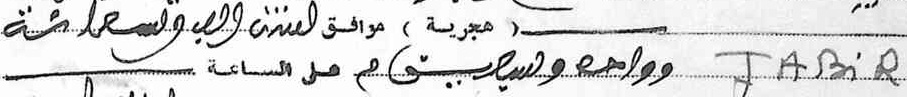 ( هجرية ) موافق لسنة الف وتسعمائة
وواحد وسبعين م على الساعة JABiR